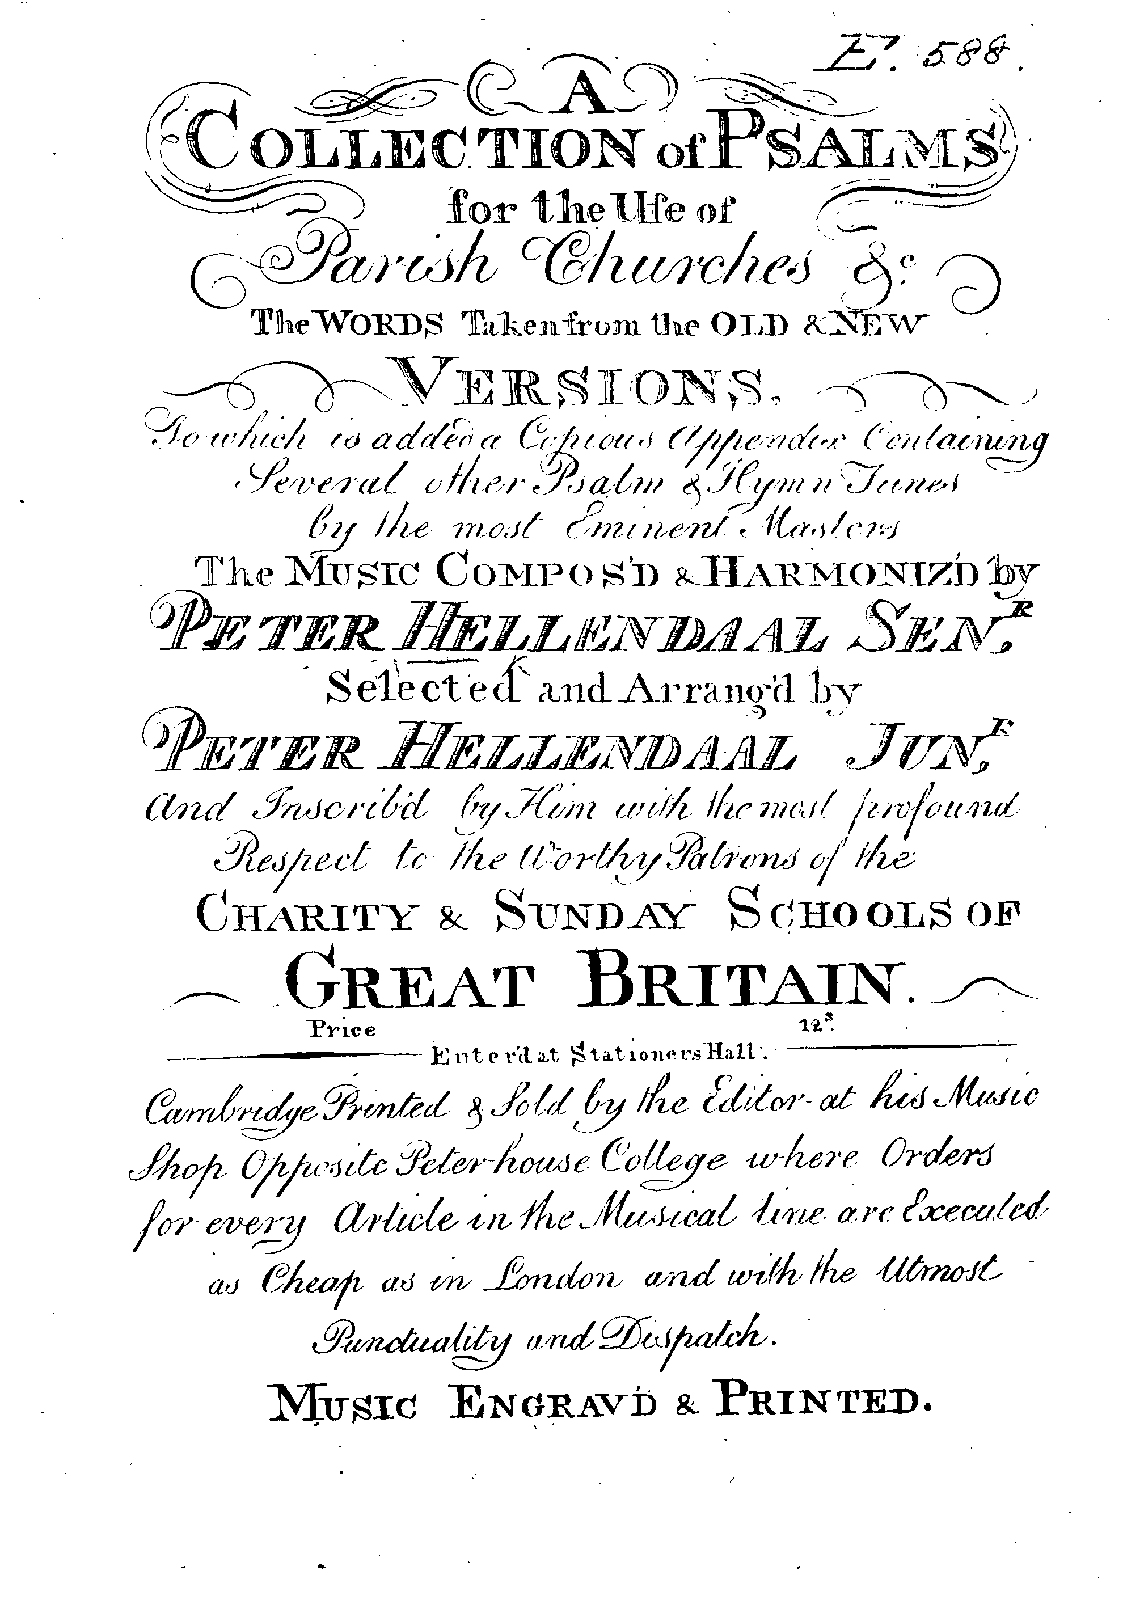 E. 588.
A
COLLECTION of PSALMS
for the Uſe of
Parish Churches &c.
The WORDS Taken from the OLD & NEW
VERSIONS.
To which is added a Copious Appendix Containing
Several other Psalm & Hymn Tunes
by the most Eminent Masters
The MUSIC COMPOS'D & HARMONIZ'D by
PETER HELLENDAAL SENR.
Selected and Arrang'd by
PETER HELLENDAAL JUNR,
And Inscrib'd by Him with the most profound
Respect to the Worthy Patrons of the
CHARITY & SUNDAY SCHOOLS OF
GREAT BRITAIN.
Price 12s.
Enter'd at Stationers Hall.
Cambridge Printed & Sold by the Editor at his Music
Shop Opposite Peter-house College where Orders
for every Article in the Musical line are Executed
as Cheap as in London and with the Utmost
Punctuality and Dispatch.
MUSIC ENGRAV'D & PRINTED.